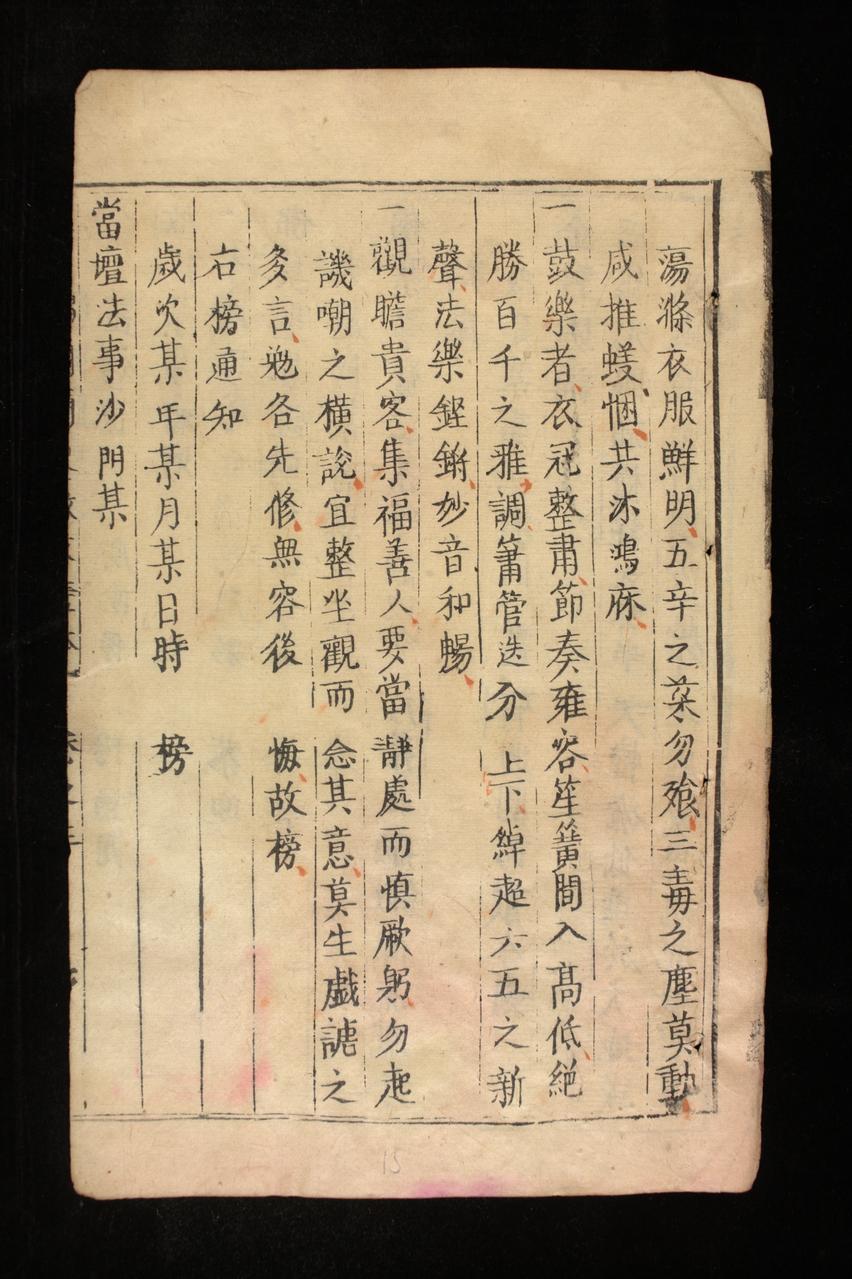 蕩滌衣服鮮明五辛之菜勿飡三毒之塵莫動
咸推蟃悃共沐鴻庥
一鼓樂者衣冠整肅節奏雍容笙簧間入高低絕
勝百千之雅調簫管迭分上下綽超六五之新
聲法樂鏗鏘妙音和暢
一觀瞻貴客集福善人要當靜處而慎厥躬勿起
譏嘲之橫說宜整坐觀而念其意莫生戲謔之
多言勉各先修無容後悔故榜
右榜通知
歲次某年某月某日時榜
當壇法事沙門某
15